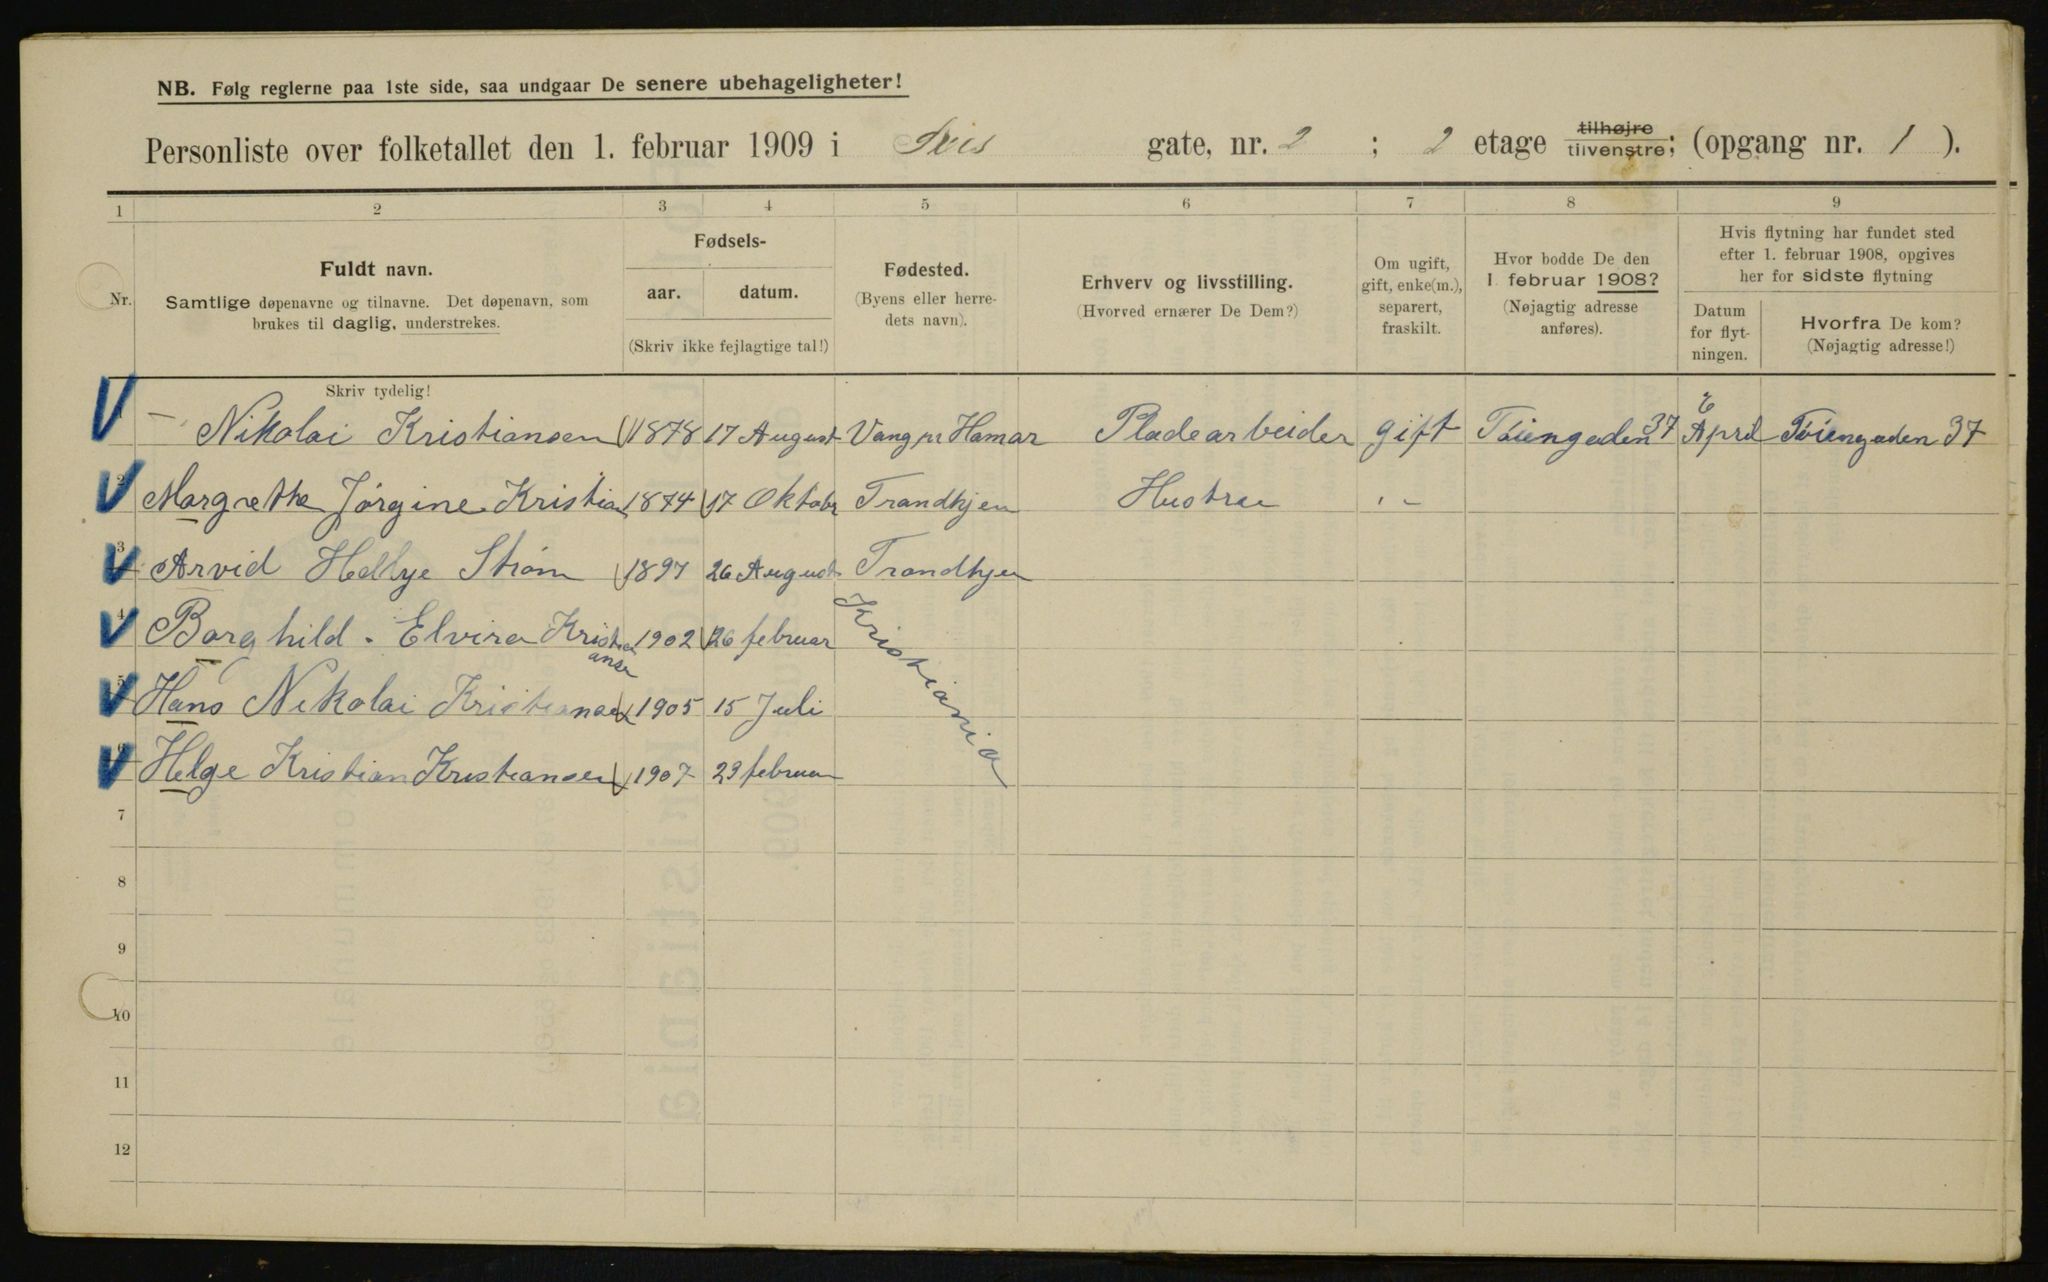 NB. Følg reglerne paa 1ste side, saa undgaar De senere ubehageligheter!
Personliste over folketallet den 1. februar 1909 i Iris gate, nr. 2 ; 2 etage tilhøjre tilvenstre; (opgang nr. 1 ).
1 2 3 4 5 6 7 8 9
Nr.
Fuldt navn.
Samtlige døpenavne og tilnavne. Det døpenavn, som
brukes til daglig, understrekes.
Skriv tydelig!
Fødsels-
aar. datum.
(Skriv ikke fejlagtige tal!)
Fødested.
(Byens eller herre-
dets navn).
Erhverv og livsstilling.
(Hvorved ernærer De Dem?)
Om ugift,
gift, enke(m.),
separert,
fraskilt.
Hvor bodde De den
1. februar 1908?
(Nøjagtig adresse
anføres).
Hvis flytning har fundet sted
efter 1. februar 1908, opgives
her for sidste flytning
Datum
for flyt-
ningen.
Hvorfra De kom?
(Nøjagtig adresse!)
1 Nikolai Kristiansen 1878 17 August Vang pr Hamar Pladearbeider gift Tøiengaden 37 April Tøiengaden 37
2 Margrethe Jørgine Kristian 1874 17 Oktobr Trondhjem Hustru "
3 Arvid Helbye Strøm 1897 26 August Trondhjem
4 Borghild Elvira Kristiansen 1902 26 februar Kristiania
5 Hans Nikolai Kristiansen 1905 15 Juli
6 Helge Kristian Kristiansen 1907 23 februar
7
8
9
10
11
12